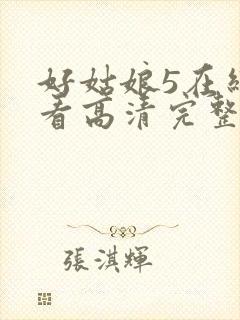 好姑娘5在
看高清完整
張淇輝